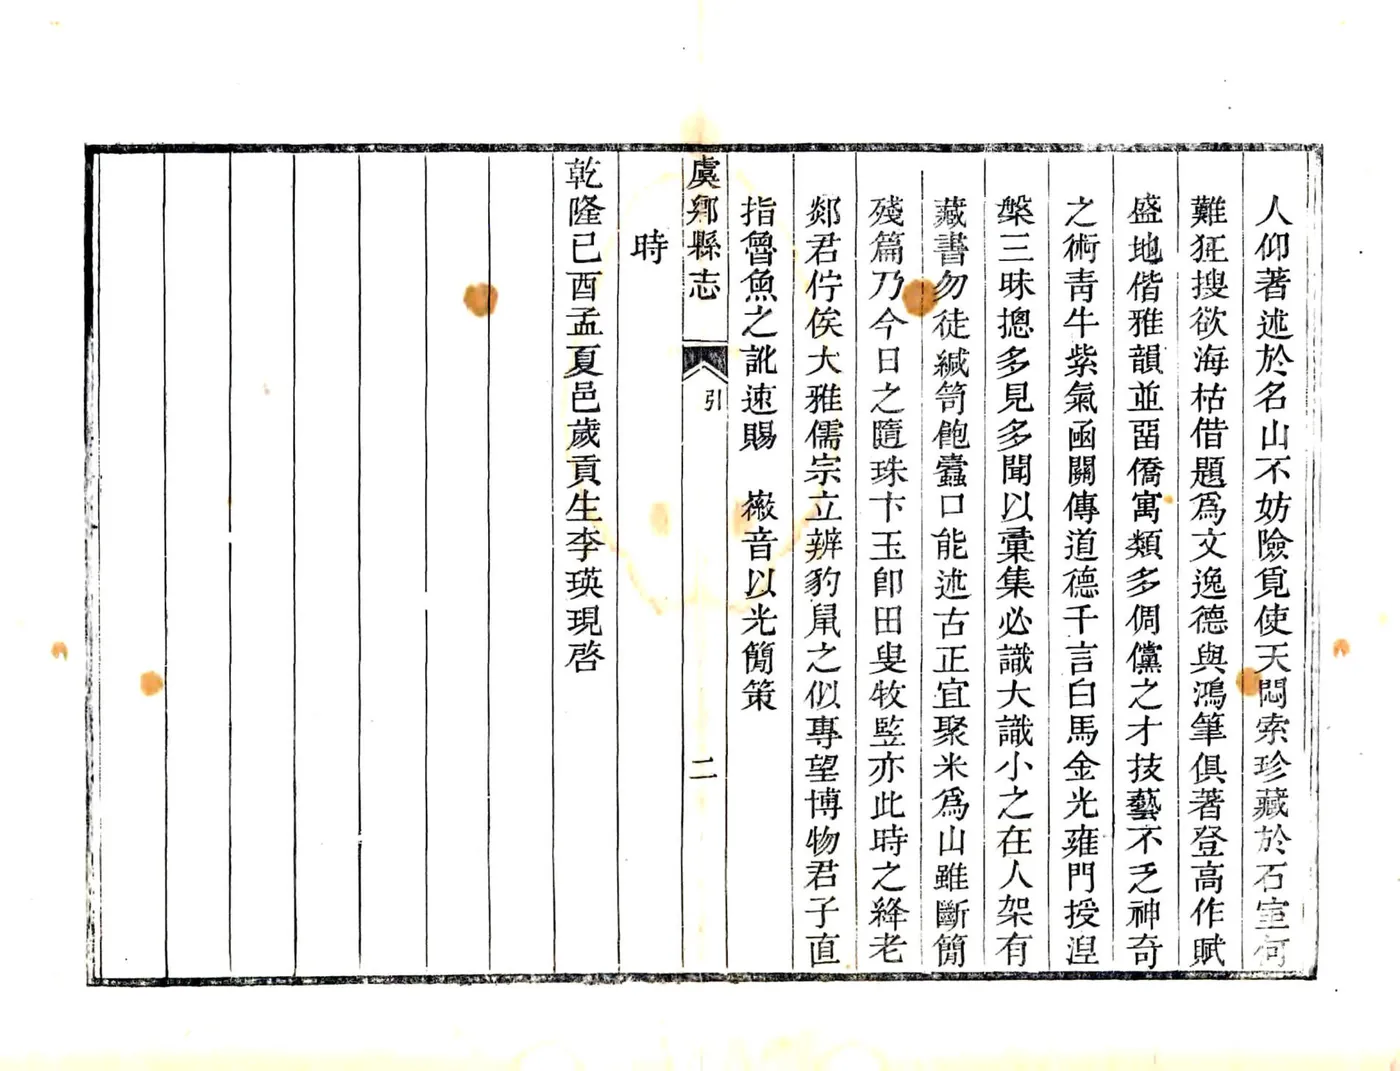 人仰著述於名山不妨險覓使天閟索珍藏於石室何
難狂搜欲海枯借題爲文逸德與鴻筆俱著登高作賦
盛地偕雅韻並畱僑寓類多倜儻之才技藝不乏神奇
之術靑牛紫氣函關傳道德千言白馬金光雍門授湼
槃三昧摠多見多聞以彙集必識大識小之在人架有
藏書勿徒緘笥飽蠹口能述古正宜聚米爲山雖斷簡
殘篇乃今日之隨珠卞玉卽田叟牧豎亦此時之絳老
郯君佇俟大雅儒宗立辨豹鼠之似專望博物君子直
指魯魚之訛速賜　徽音以光簡策
虞鄉縣志
引
二
時
乾隆己酉孟夏邑歲貢生李瑛現啓